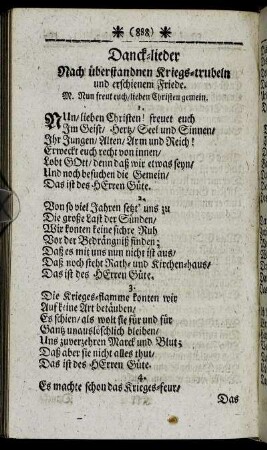 (888)
Danck-lieder
Nach überstandnen Kriegs-trubeln
und erschienem Friede.
M. Nun freut euch, lieben Christen gemein.
1.
NUn, lieben Christen! freuet euch
Im Geist, Hertz, Seel und Sinnen,
Ihr Jungen, Alten, Arm und Reich!
Erweckt euch recht von innen,
Lobt GOtt, denn daß wir etwas seyn,
Und noch besuchen die Gemein,
Das ist des HErren Güte.
2.
Von so viel Jahren setzt' uns zu
Die große Last der Sünden,
Wir konten keine sichre Ruh
Vor der Bedrängniß finden;
Daß es mit uns nun nicht ist aus,
Daß noch steht Rath- und Kirchen-haus,
Das ist des HErren Güte.
3.
Die Krieges-flamme konten wir
Auf keine Art betäuben,
Es schien, als wolt sie für und für
Gantz unauslöschlich bleiben,
Uns zuverzehren Marck und Blut;
Daß aber sie nicht alles thut,
Das ist des HErren Güte.
4.
Es machte schon das Krieges-feur,
Das